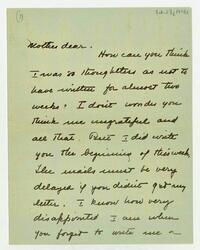 (1)
Mother dear.
How can you think
I was so thoughtless as not to
have written for almost two
weeks? I don't wonder you
think me ungrateful and
all that. But I did write
you the beginning of this week.
The mails must be very
delayed if you didn't get my
letter. I know how very
disappointed I am when
you forget to write me a